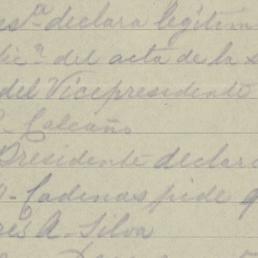 es.ª declara legítim
lic.ⁿ del acta de la s
del Vicepresidente
Calcaño
Presidente declar
Cadenas pide q
A. Silva